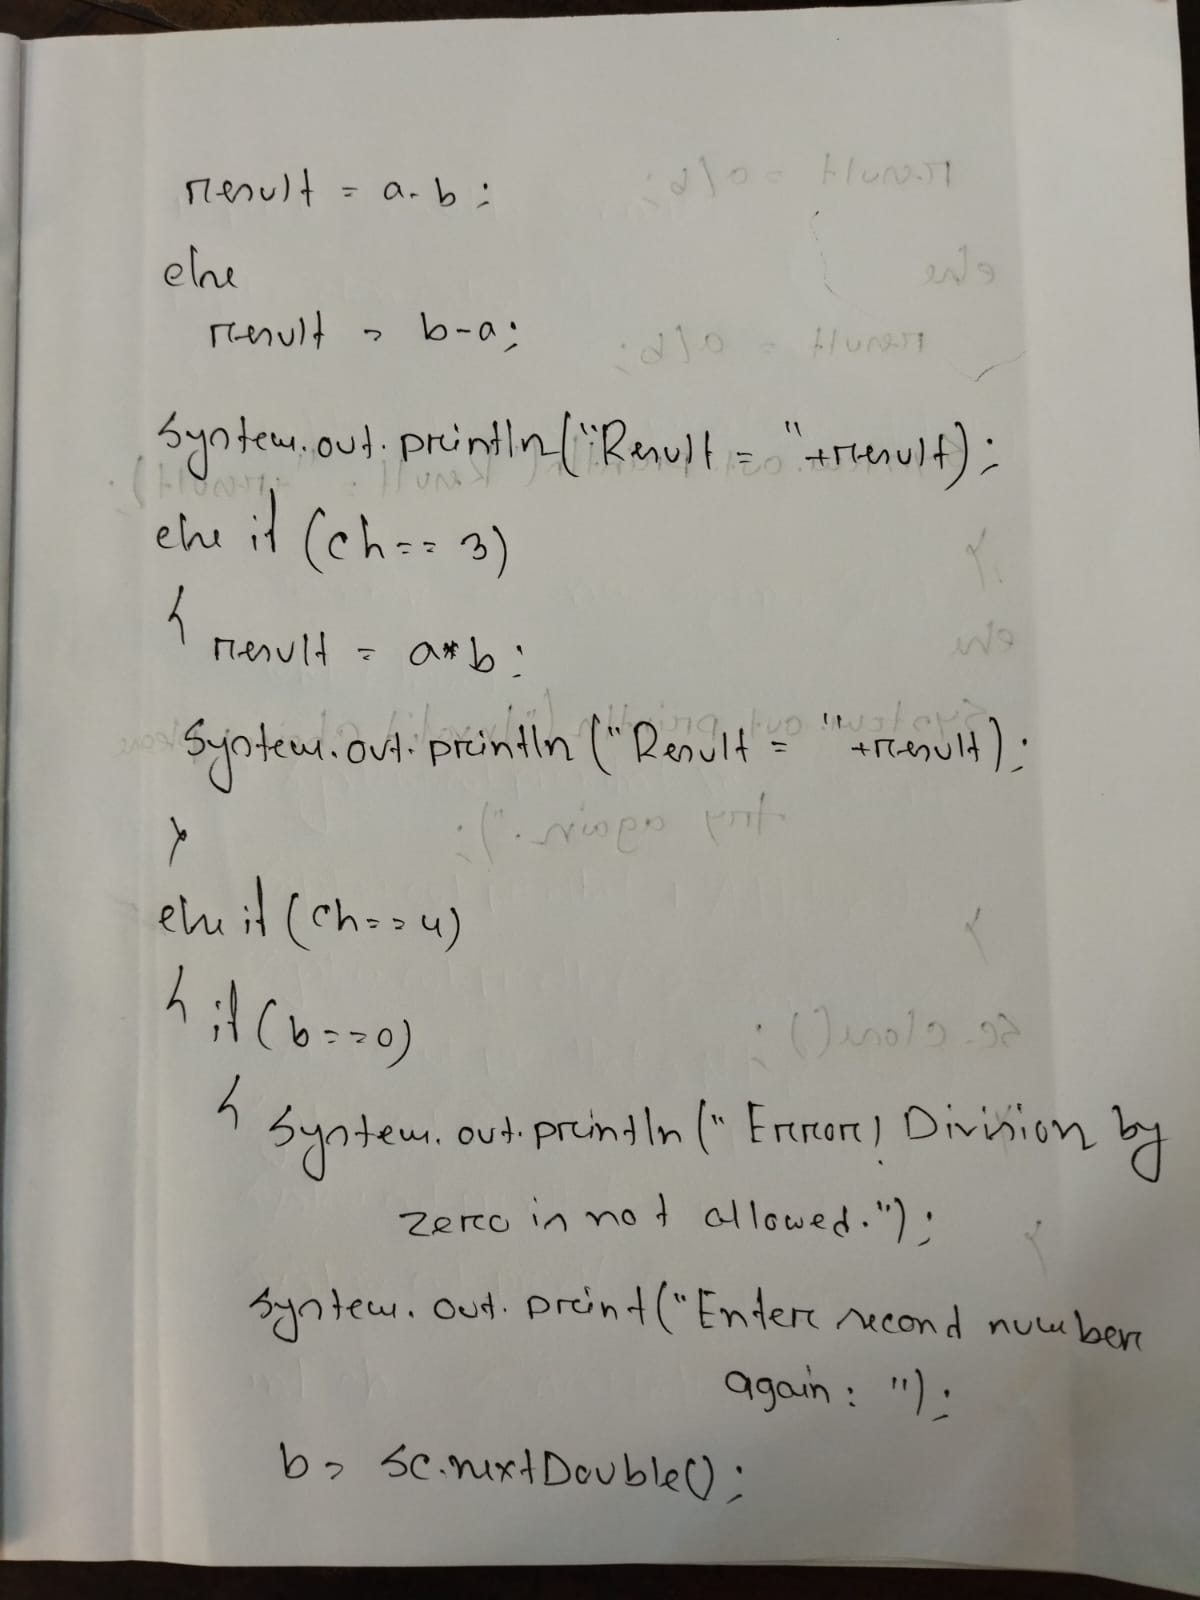 result = a-b;
else
result = b-a;
System.out.println("Result = "+result);
else if (ch==3)
{
result = a*b;
System.out.println("Result = "+result);
}
else if (ch==4)
{ if (b==0)
{ System.out.println("Error! Division by
zero is not allowed.");
System.out.print("Enter second number
again: ");
b = sc.nextDouble();